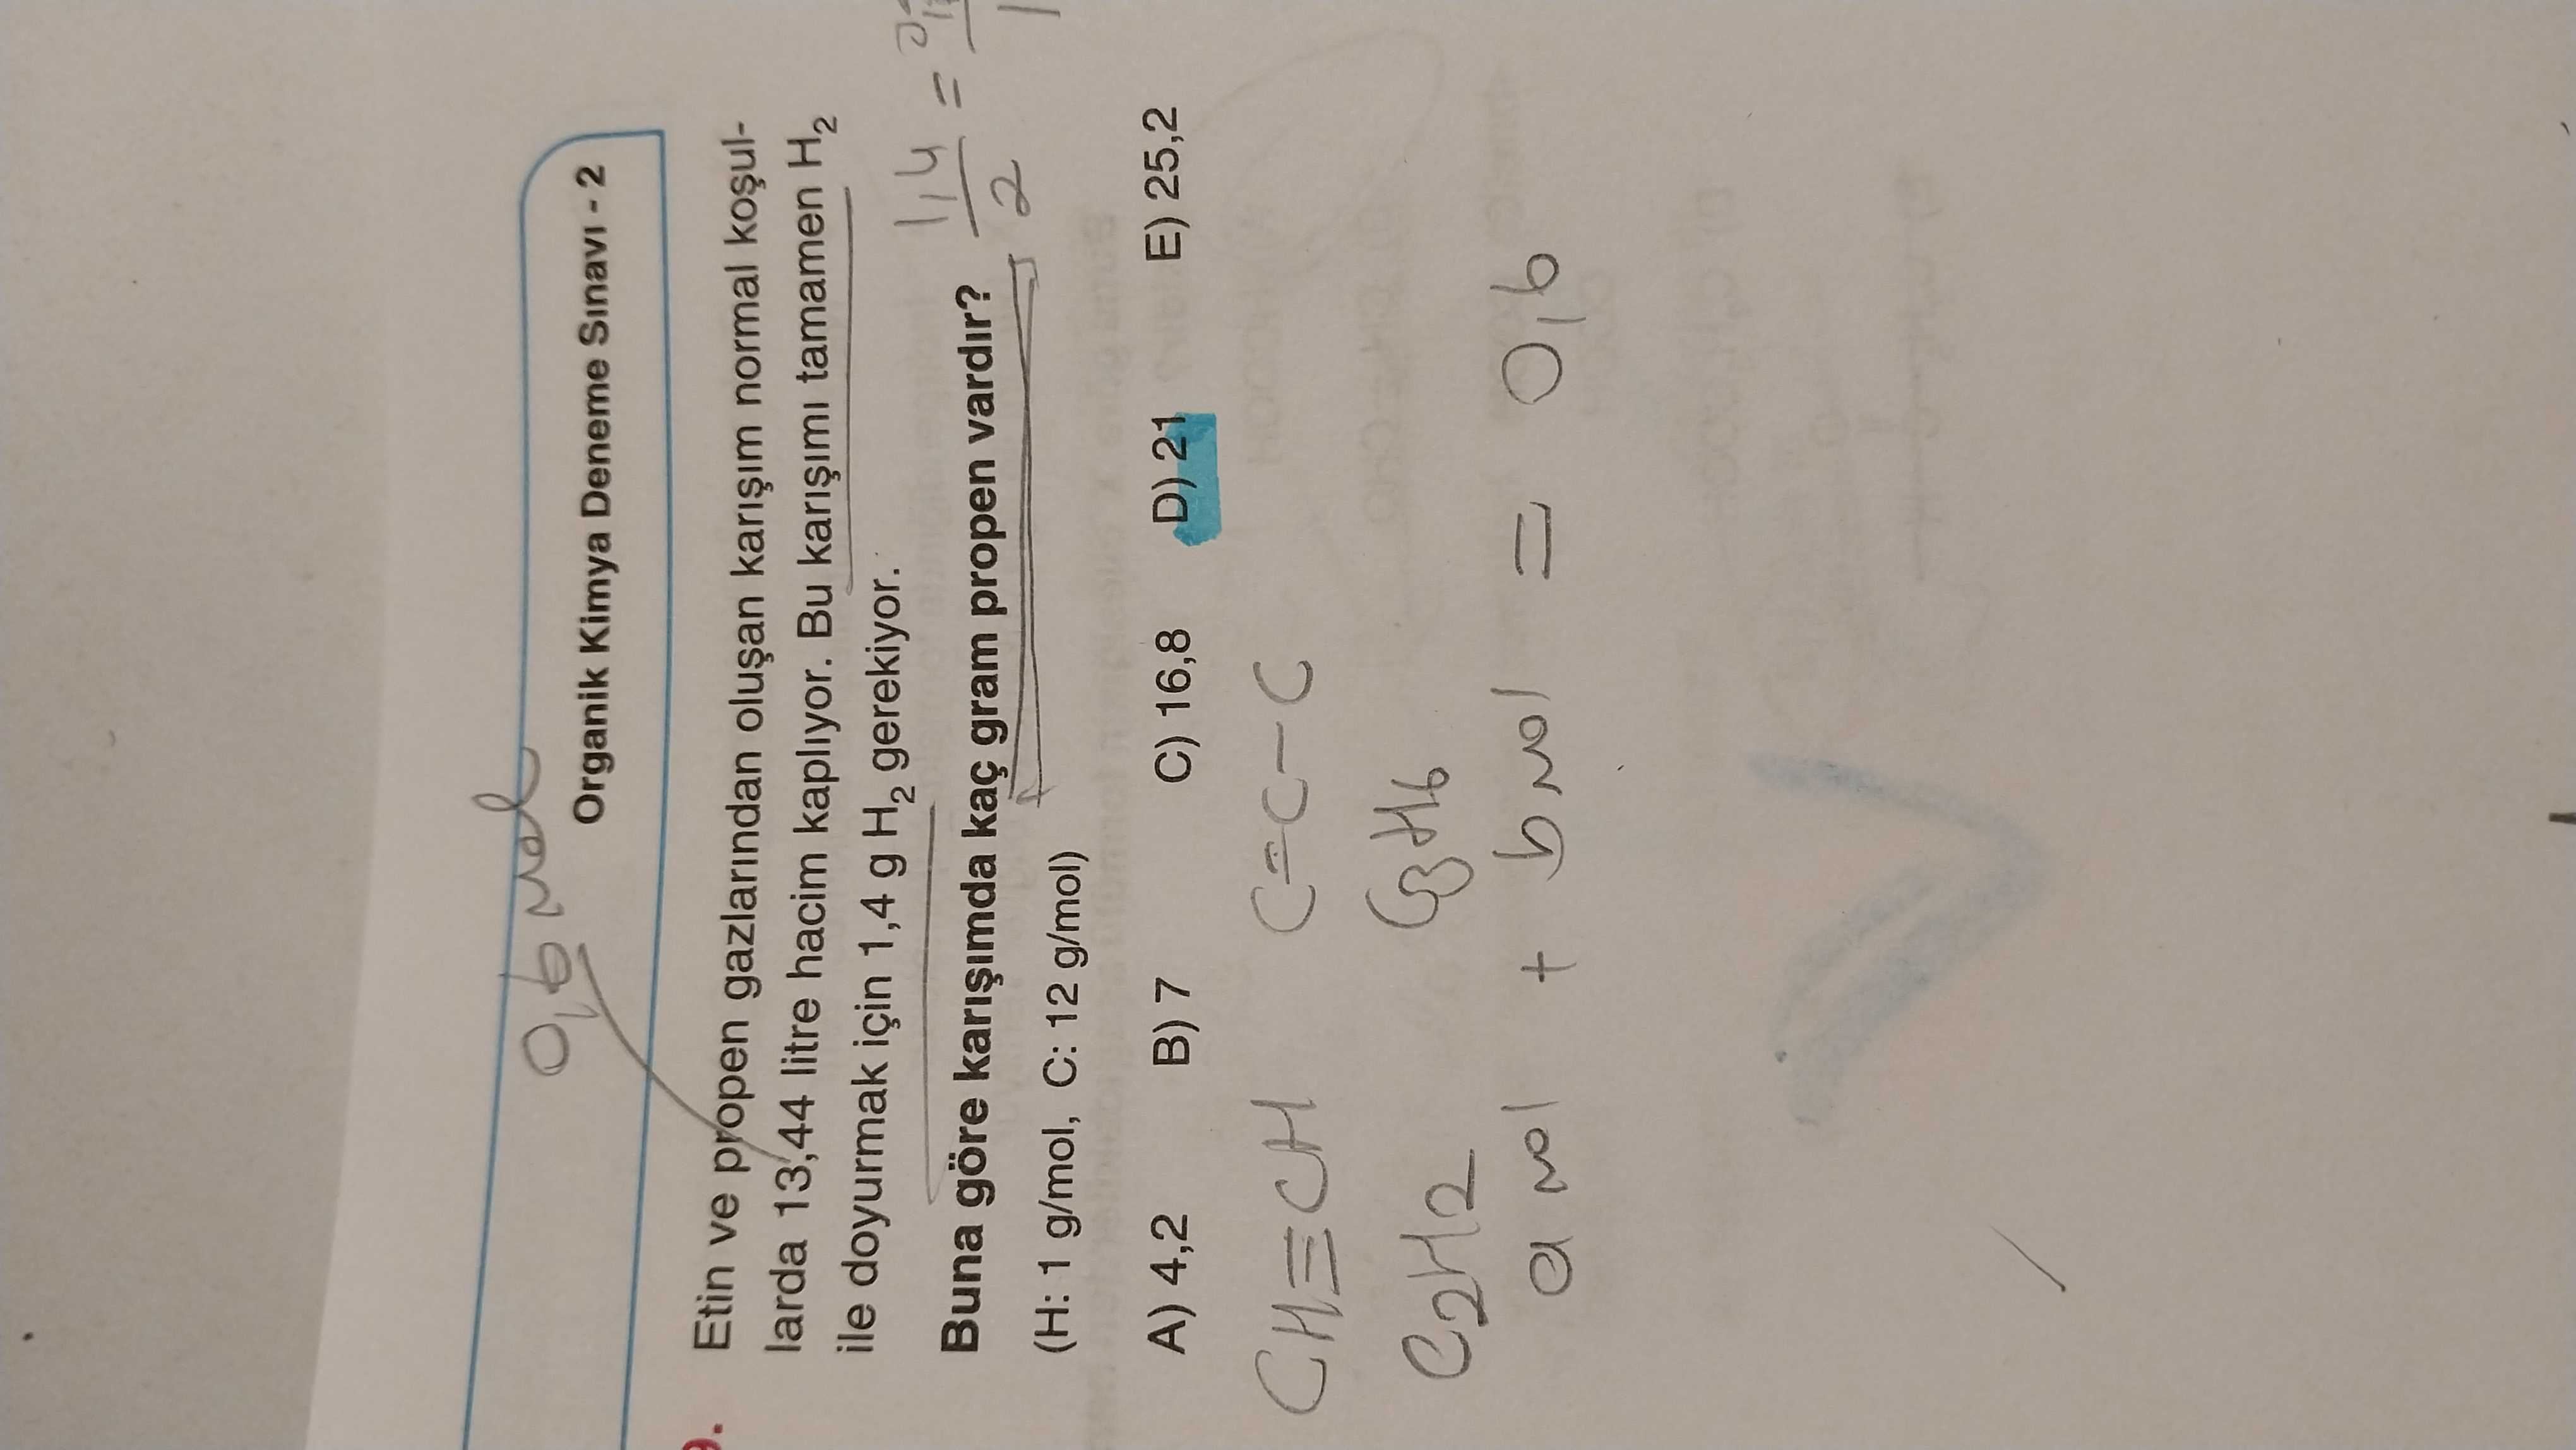 0,6 mol
Organik Kimya Deneme Sınavı - 2
9. Etin ve propen gazlarından oluşan karışım normal koşul-
larda 13,44 litre hacim kaplıyor. Bu karışımı tamamen H2
ile doyurmak için 1,4 g H2 gerekiyor.
1,4
2 =
Buna göre karışımda kaç gram propen vardır?
(H: 1 g/mol, C: 12 g/mol)
A) 4,2 B) 7 C) 16,8 D) 21 E) 25,2
CH≡CH C=C-C
C2H2 C3H6
a mol + b mol = 0,6